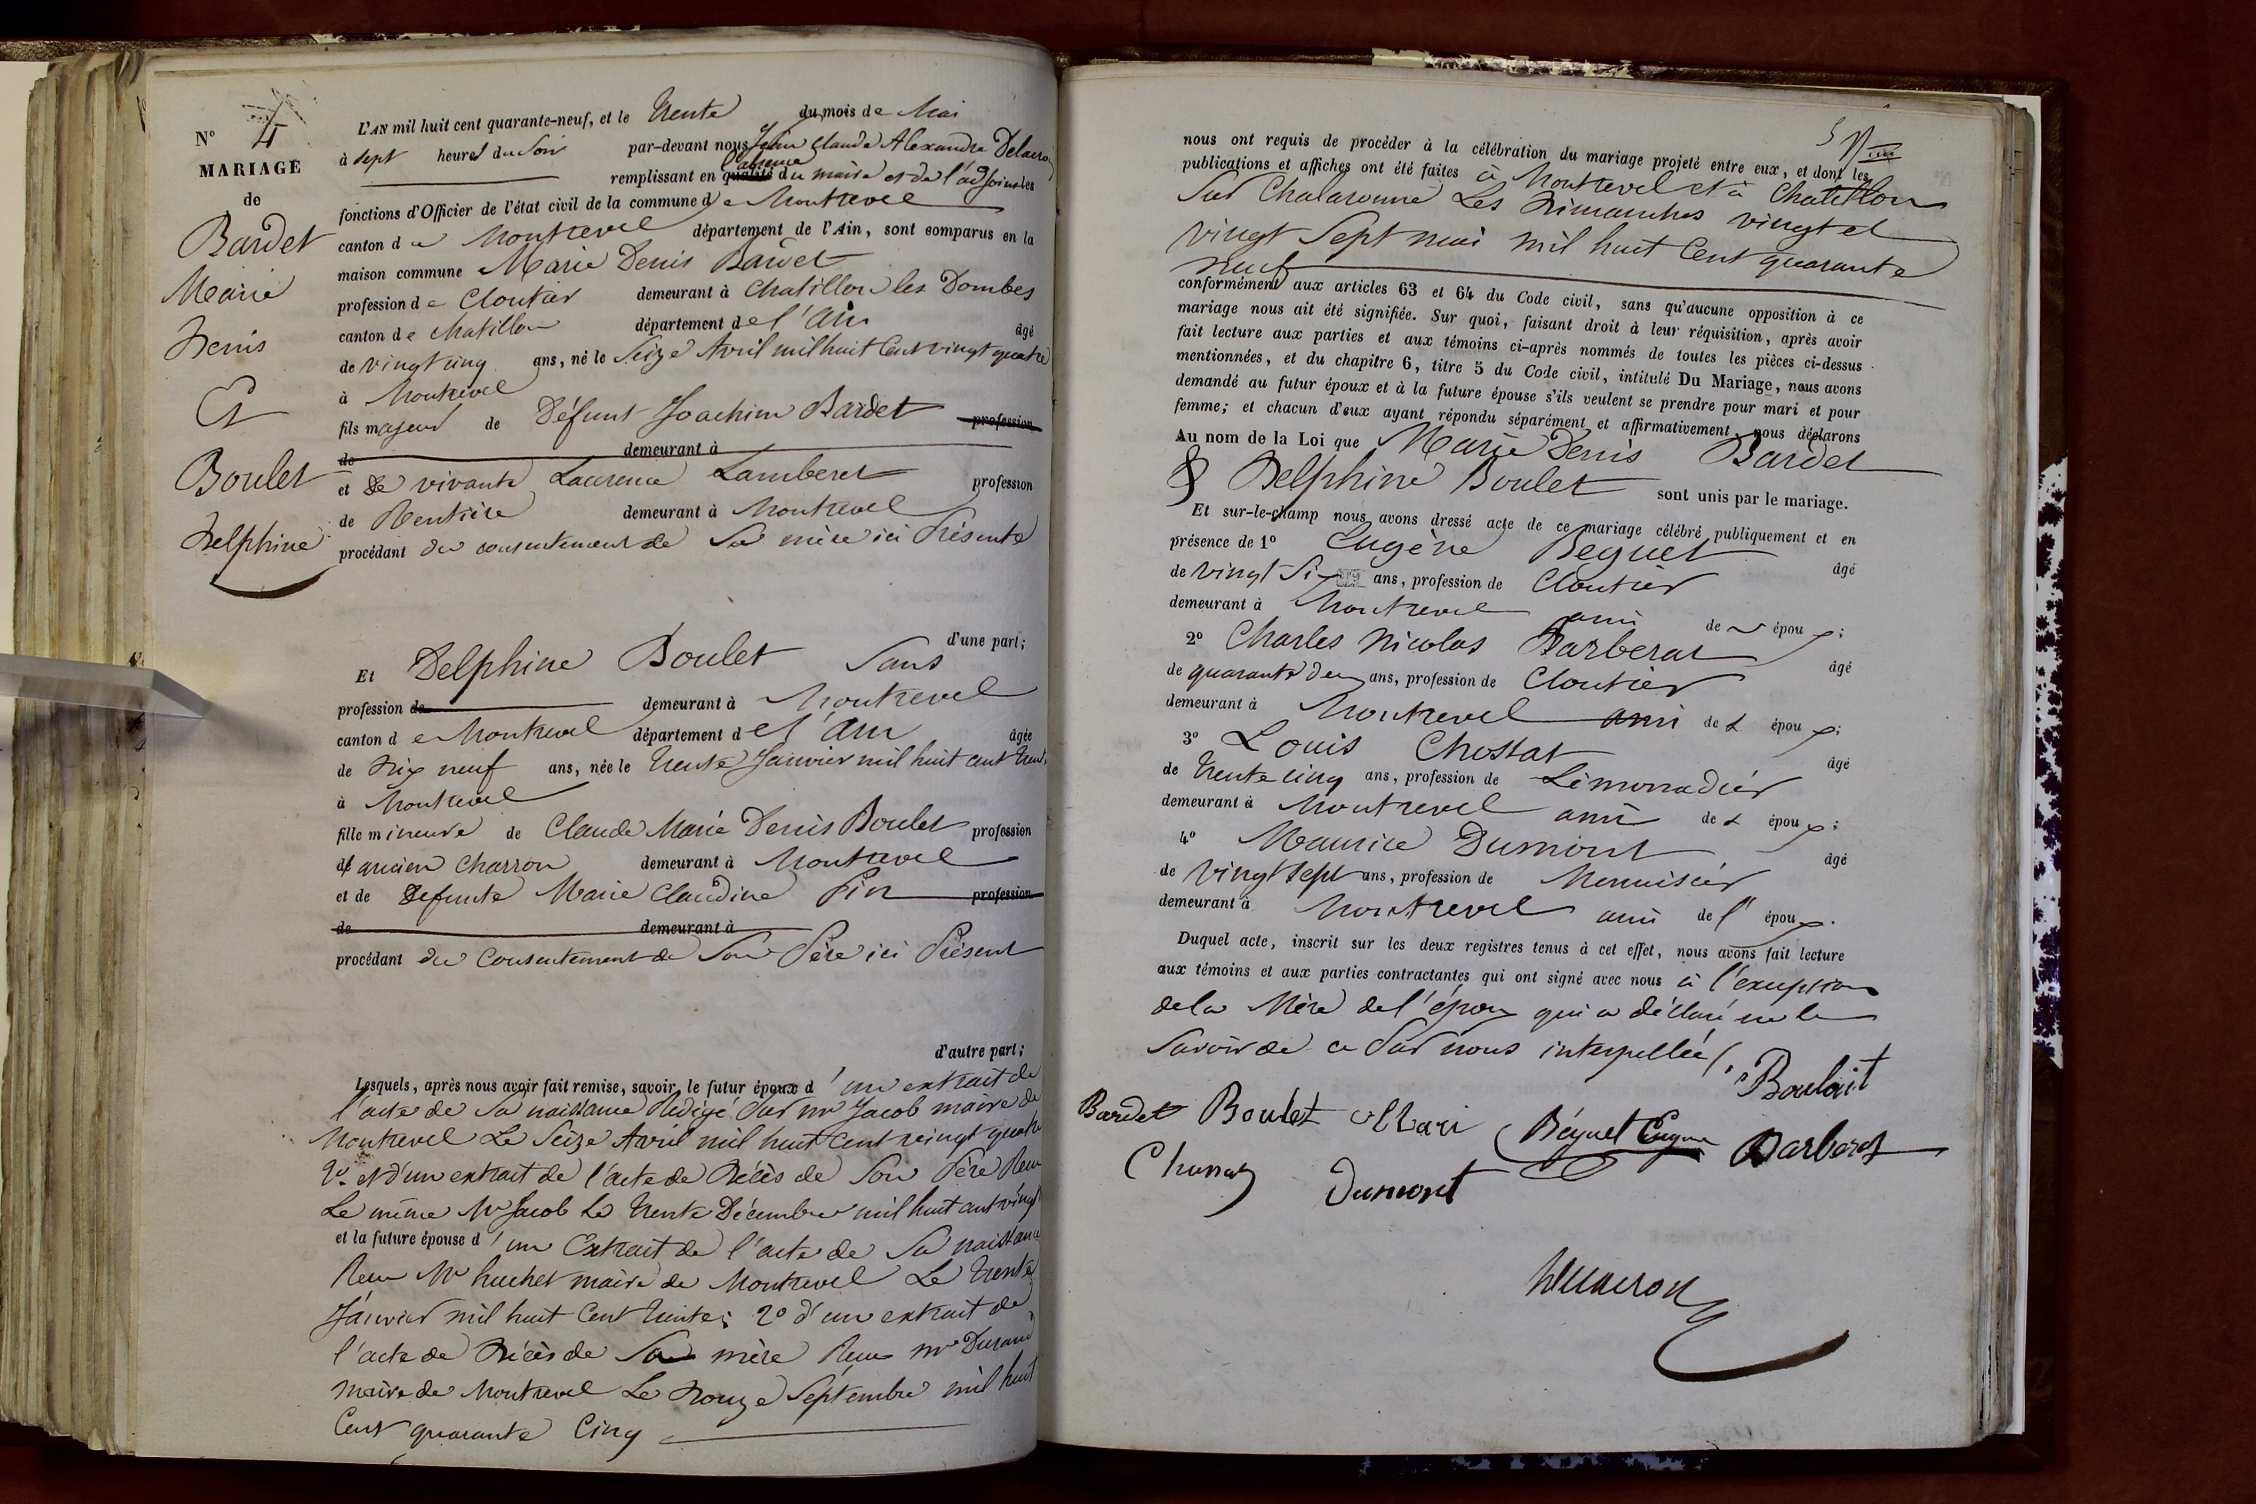 N° 4
MARIAGE
de
Bardet
Marie
Denis
Et
Boulet
Delphine
L'AN mil huit cent quarante-neuf, et le Trente du mois de Mai
à sept heures du Soir par-devant nous Jean Claude Alexandre Delacroix
remplissant en qualité l'absence du maire et de l'adjoint les
fonctions d'Officier de l'état civil de la commune de Montrevel
canton de Montrevel département de l'Ain, sont comparus en la
maison commune Marie Denis Bardet
profession de Cloutier demeurant à Chatillon les Dombes
canton de Chatillon département de l'Ain âgé
de vingt cinq ans, né le Seize Avril mil huit Cent vingt quatre
à Montrevel
fils majeur de Défunt Joachim Bardet profession
de demeurant à
et de vivante Laurence Lamberet profession
de Rentière demeurant à Montrevel
procédant du consentement de Sa mère ici Présente
d'une part;
Et Delphine Boulet Sans
profession de demeurant à Montrevel
canton de Montrevel département de l'Ain âgée
de Dix neuf ans, née le Trente Janvier mil huit cent trente
à Montrevel
fille mineure de Claude Marie Denis Boulet profession
d'ancien Charron demeurant à Montrevel
et de Defunte Marie Claudine Pin profession
de demeurant à
procédant du Consentement de Son Père ici Présent
d'autre part;
Lesquels, après nous avoir fait remise, savoir, le futur époux d'un extrait de
l'acte de Sa naissance Rédigé Par mr Jacob maire de
Montrevel Le Seize Avril mil huit Cent vingt quatre
2° et d'un extrait de l'acte de Décès de Son Père Reçu
Le même Mr Jacob Le Trente Décembre mil huit cent vingt
et la future épouse d'un Extrait de l'acte de Sa naissance
Reçu Mr huchet maire de Montrevel Le Trente
Janvier mil huit Cent Trente; 2° d'un extrait de
l'acte de Décès de Sa mère Reçu mr Durand
maire de Montrevel Le Douze Septembre mil huit
Cent quarante Cinq
nous ont requis de procéder à la célébration du mariage projeté entre eux, et dont les
publications et affiches ont été faites à Montrevel et à Chatillon
Sur Chalaronne Les Dimanches vingt et
vingt Sept mai mil huit Cent quarante
neuf
conformément aux articles 63 et 64 du Code civil, sans qu'aucune opposition à ce
mariage nous ait été signifiée. Sur quoi, faisant droit à leur réquisition, après avoir
fait lecture aux parties et aux témoins ci-après nommés de toutes les pièces ci-dessus
mentionnées, et du chapitre 6, titre 5 du Code civil, intitulé Du Mariage, nous avons
demandé au futur époux et à la future épouse s'ils veulent se prendre pour mari et pour
femme; et chacun d'eux ayant répondu séparément et affirmativement, nous déclarons
Au nom de la Loi que Marie Denis Bardet
& Delphine Boulet sont unis par le mariage.
Et sur-le-champ nous avons dressé acte de ce mariage célébré publiquement et en
présence de 1° Eugène Beguet âgé
de vingt Six ans, profession de Cloutier
demeurant à Montrevel ami de l' époux;
2° Charles Nicolas Barberat âgé
de quarante deux ans, profession de Cloutier
demeurant à Montrevel ami de l' époux;
3° Louis Chossat âgé
de Trente cinq ans, profession de Limonadier
demeurant à Montrevel ami de l' époux;
4° Maurice Dumont âgé
de vingt sept ans, profession de Menuisier
demeurant à Montrevel ami de l' époux.
Duquel acte, inscrit sur les deux registres tenus à cet effet, nous avons fait lecture
aux témoins et aux parties contractantes qui ont signé avec nous à l'exception
de la Mère de l'époux qui a déclaré ne le
Savoir de ce Par nous interpellée
Boulait
Bardet Boulet Béguet Eugene Barberat
Chossat Dumont
Delacroix